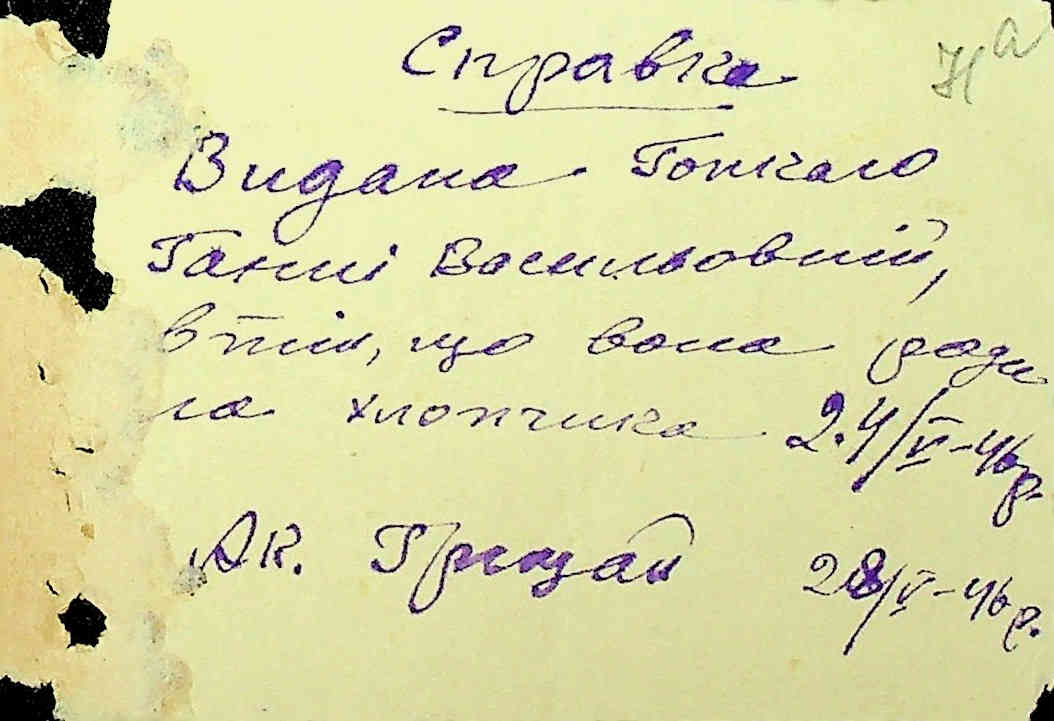 Справка
Видана
Ганні Васильовній,
в тім, що вона роди
ла хлопчика 24/V-46 р.
Ак. Грицай 28/V-46 р.